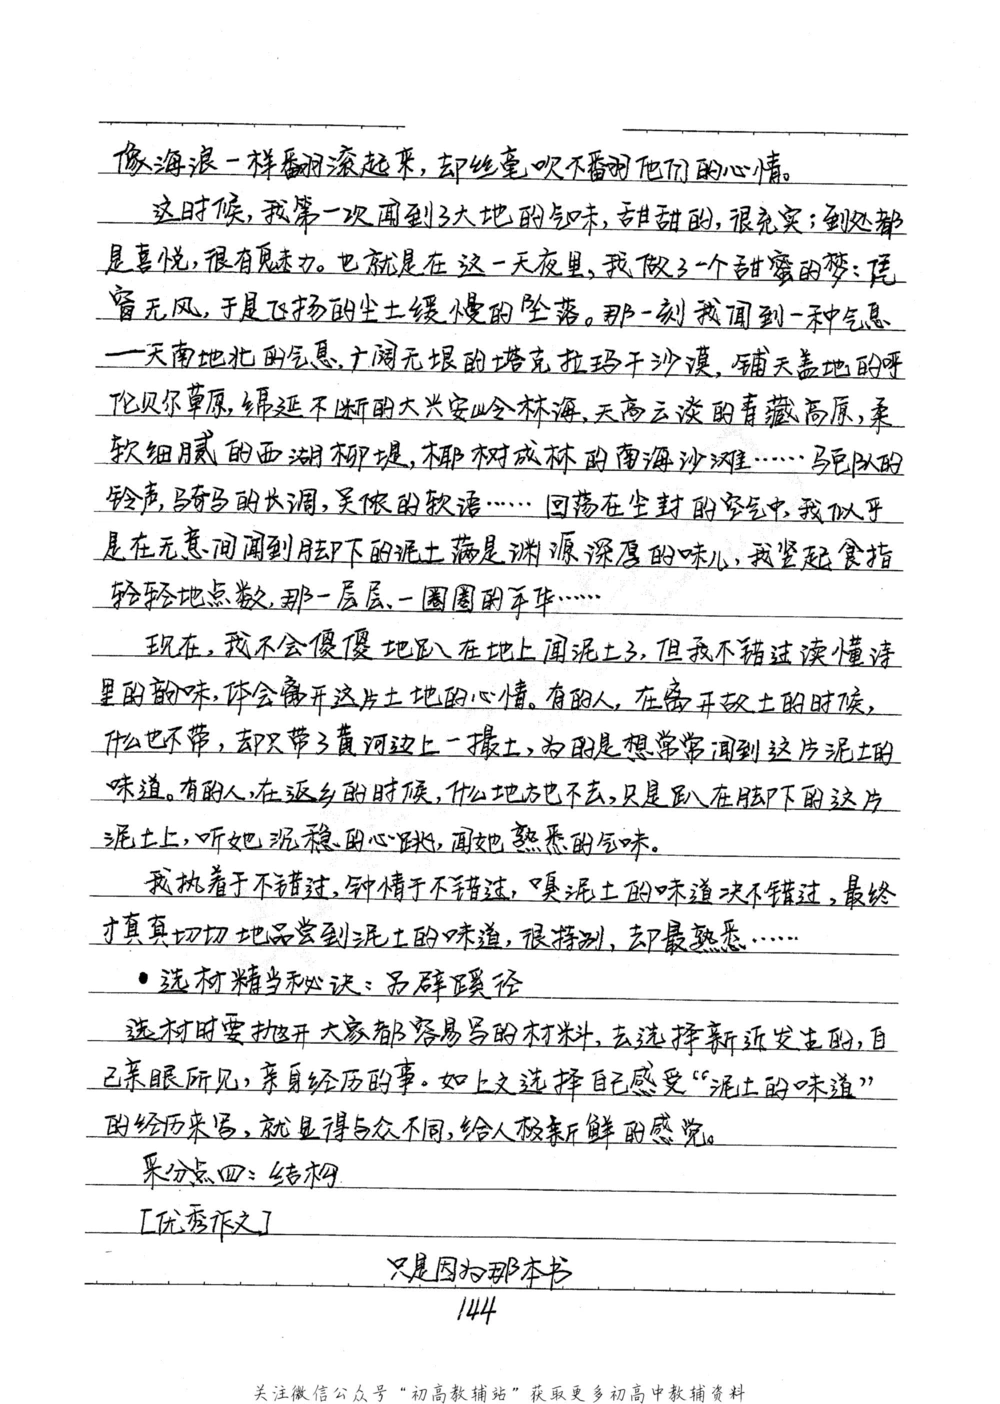 像海浪一样翻滚起来，却丝毫吹不翻他们的心情。
这时候，我第一次闻到了大地的气味，甜甜的，很充实；到处都
是喜悦，很有魅力。也就是在这一天夜里，我做了一个甜蜜的梦：院
窗无风，于是飞扬的尘土缓慢的坠落。那一刻我闻到一种气息
——天南地北的气息，广阔无垠的塔克拉玛干沙漠，铺天盖地的呼
伦贝尔草原，绵延不断的大兴安岭林海，天高云淡的青藏高原，柔
软细腻的西湖柳堤，椰树成林的南海沙滩……马队的
铃声，骑马的长调，吴侬的软语……回荡在尘封的空气中，我似乎
是在无意间闻到脚下的泥土满是渊源深厚的味儿，我竖起食指
轻轻地点数，那一层层、一圈圈的年华……
现在，我不会傻傻地趴在地上闻泥土了，但我不错过读懂诗
里的韵味，体会离开这片土地的心情。有的人，在离开故土的时候，
什么也不带，却只带了黄河边上一撮土，为的是想常常闻到这片泥土的
味道。有的人，在返乡的时候，什么地方也不去，只是趴在脚下的这片
泥土上，听她沉稳的心跳，闻她熟悉的气味。
我执着于不错过，钟情于不错过，嗅泥土的味道决不错过，最终
才真真切切地品尝到泥土的味道，很特别，却最熟悉……
•选材精当秘诀：另辟蹊径
选材时要抛开大家都容易写的材料，去选择新近发生的，自
己亲眼所见，亲身经历的事。如上文选择自己感受“泥土的味道”
的经历来写，就显得与众不同，给人极新鲜的感觉。
采分点四：结构
[优秀作文]
只是因为那本书
144
关注微信公众号“初高教辅站”获取更多初高中教辅资料